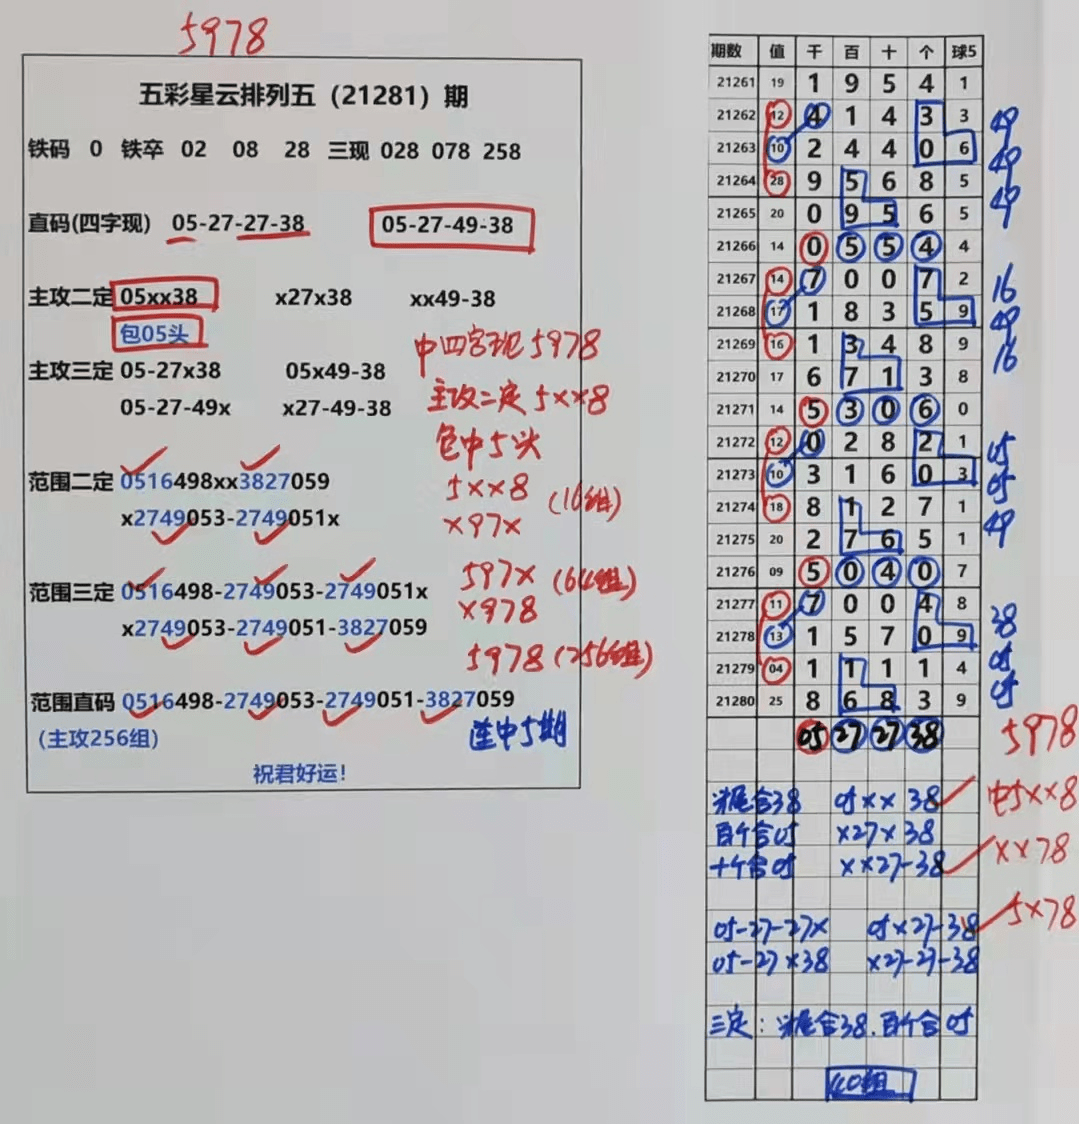 5978
五彩星云排列五（21281）期
铁码 0 铁卒 02 08 28 三现 028 078 258
直码(四字现) 05-27-27-38 05-27-49-38
主攻二定 05xx38 x27x38 xx49-38
包05头
中四字现5978
主攻三定 05-27x38 05x49-38
主攻二定5××8
05-27-49x x27-49-38
包中5头
范围二定 0516498xx3827059
5××8 (16组)
x2749053-2749051x
×97×
范围三定 0516498-2749053-2749051x
597× (64组)
×978
x2749053-2749051-3827059
5978 (256组)
范围直码 0516498-2749053-2749051-3827059
(主攻256组)
连中5期
祝君好运!
期数 值 千 百 十 个 球5
21261 19 1 9 5 4 1
21262 12 4 1 4 3 3 49
21263 10 2 4 4 0 6 49
21264 28 9 5 6 8 5 49
21265 20 0 9 5 6 5
21266 14 0 5 5 4 4
21267 14 7 0 0 7 2 16
21268 17 1 8 3 5 9 49
21269 16 1 3 4 8 9 16
21270 17 6 7 1 3 8
21271 14 5 3 0 6 0
21272 12 0 2 8 2 1 05
21273 10 3 1 6 0 3 05
21274 18 8 1 2 7 1 49
21275 20 2 7 6 5 1
21276 09 5 0 4 0 7
21277 11 7 0 0 4 8 38
21278 13 1 5 7 0 9 05
21279 04 1 1 1 1 4 05
21280 25 8 6 8 3 9
05 27 27 38 5978
米尾合38 05×× 38 中5××8
百个合05 ×27×38
十个合05 ××27-38 ××78
05-27-27× 05×27-38 5×78
05-27×38 ×27-27-38
三定：米尾合38.百个合05
40组